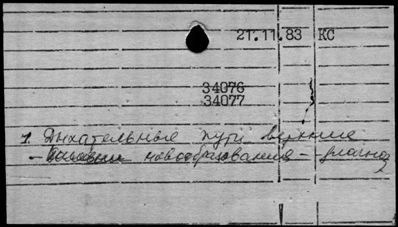 21.11.83 КС
34076
34077
1. Дыхательные пути верхние
- новообразования - диагноз